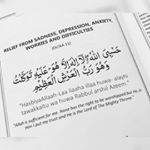 RELIEF FROM SADNESS, DEPRESSION, ANXIETY,
WORRIES AND DIFFICULTIES
حَسْبِيَ اللَّهُ لَا إِلَٰهَ إِلَّا هُوَ عَلَيْهِ تَوَكَّلْتُ
وَهُوَ رَبُّ الْعَرْشِ الْعَظِيمِ
"Hasbiyaallaah Laa ilaaha illaa huwa- alayhi
tawakkaltu wa huwa Rabbul arshil Azeem."
"Allah is sufficient for me. None has the right to be worshipped but He, in
Him I put my trust and He is the Lord of The Mighty Throne."